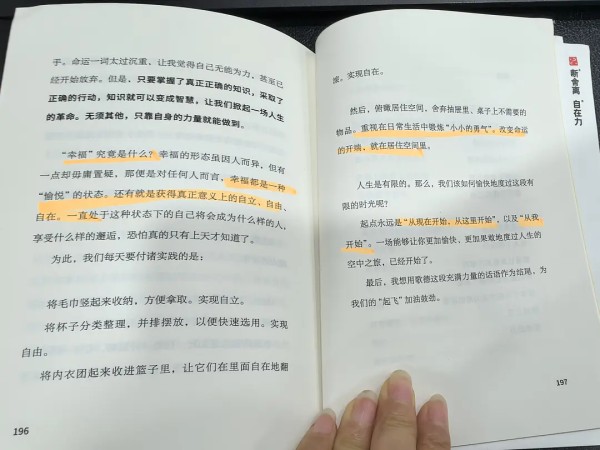 手。命运一词太过沉重，让我觉得自己无能为力，甚至已
经开始放弃。但是，只要掌握了真正正确的知识，采取了
正确的行动，知识就可以变成智慧，让我们掀起一场人生
的革命。无须其他，只靠自身的力量就能做到。
“幸福”究竟是什么？幸福的形态虽因人而异，但有
一点却毋庸置疑，那便是对任何人而言，幸福都是一种
“愉悦”的状态。还有就是获得真正意义上的自立、自由、
自在。一直处于这种状态下的自己将会成为什么样的人，
享受什么样的邂逅，恐怕真的只有上天才知道了。
为此，我们每天要付诸实践的是：
将毛巾竖起来收纳，方便拿取。实现自立。
将杯子分类整理，并排摆放，以便快速选用。实现
自由。
将内衣团起来收进篮子里，让它们在里面自在地翻
196
滚。实现自在。
然后，俯瞰居住空间，舍弃抽屉里、桌子上不需要的
物品。重视在日常生活中锻炼“小小的勇气”。改变命运
的开端，就在居住空间里。
人生是有限的。那么，我们该如何愉快地度过这段有
限的时光呢？
起点永远是“从现在开始，从这里开始”，以及“从我
开始”。一场能够让你更加愉快，更加果敢地度过人生的
空中之旅，已经开始了。
最后，我想用歌德这段充满力量的话语作为结尾，为
我们的“起飞”加油鼓劲。
197
断舍离 自在力